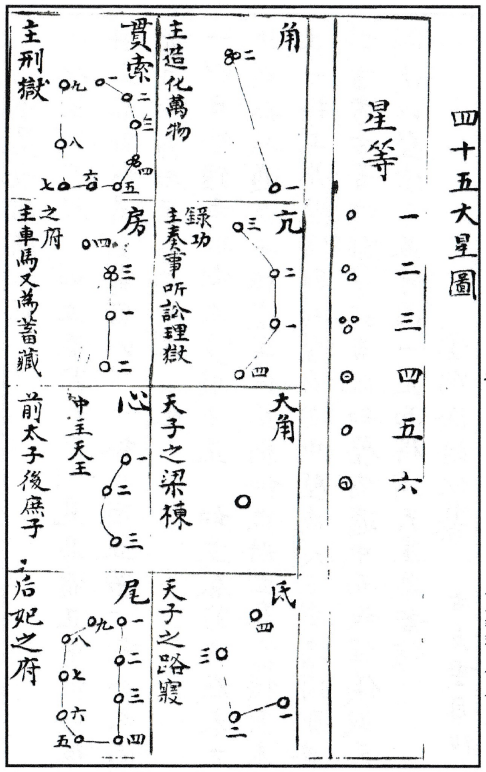 四十五大星圖
星等
一
二
三
四
五
六
角
主造化萬物
二
一
亢
錄功
主奏事听訟理獄
三
二
一
四
大角
天子之梁棟
氐
天子之路寢
四
三
二
一
貫索
主刑獄
一
二
三
四
五
六
七
八
九
房
之府
主車馬又為蓄藏
四
三
一
二
心
中主天王
前太子後庶子
一
二
三
尾
后妃之府
一
二
三
四
五
六
七
八
九